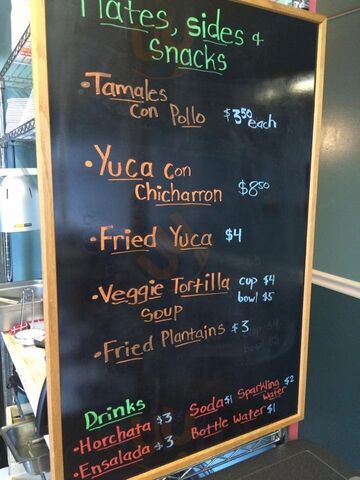 Plates, sides +
Snacks
•Tamales
Con Pollo $3.50 each
•Yuca Con
Chicharron $8.50
•Fried Yuca $4
•Veggie Tortilla cup $4
Soup bowl $5
•Fried Plantains $3
Drinks
•Horchata $3
•Ensalada $3
Soda $1 Sparkling Water $2
Bottle Water $1